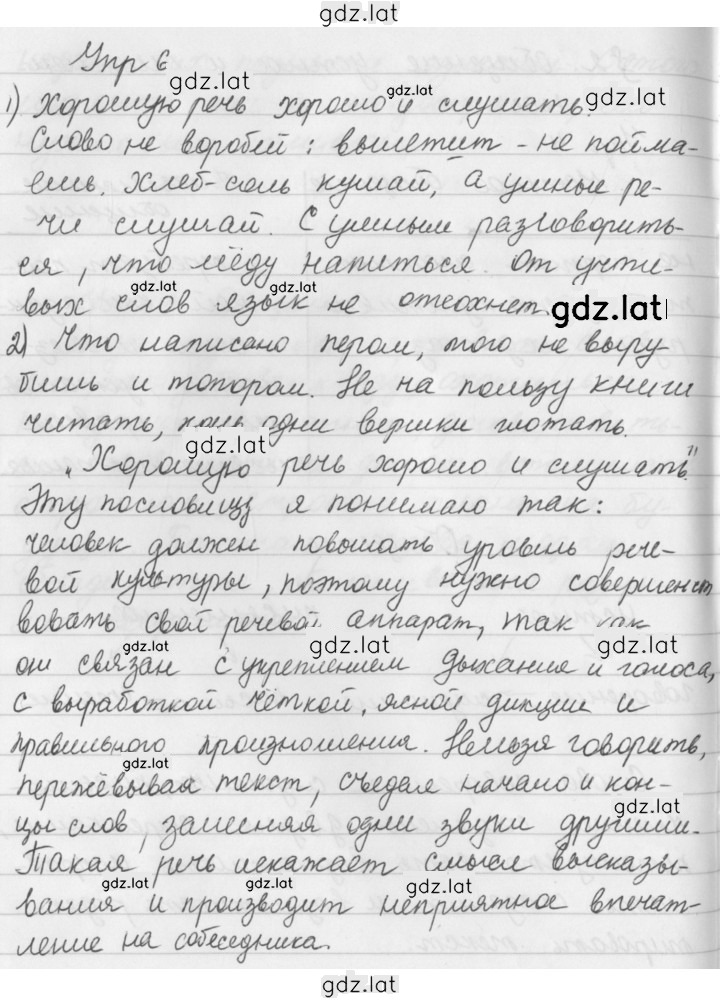 gdz.lat
Упр 6
gdz.lat
1) Хорошую речь хорошо и слушать.
gdz.lat
gdz.lat
Слово не воробей: вылетит - не пойма-
ешь. Хлеб-соль кушай, а умные ре-
чи слушай. С умным разговорить-
ся, что мёду напиться. От учти-
вых слов язык не отсохнет.
gdz.lat
gdz.lat
gdz.lat
2) Что написано пером, того не выру
бишь и топором. Не на пользу книги
читать, одни вершки глотать.
gdz.lat
„Хорошую речь хорошо и слушать"
Эту пословицу я понимаю так:
человек должен повышать уровень рече-
вой культуры, поэтому нужно совершенст
вовать свой речевой аппарат, так как
gdz.lat
gdz.lat
gdz.lat
он связан с укреплением дыхания и голоса,
с выработкой чёткой, ясной дикции и
правильного произношения. Нельзя говорить,
gdz.lat
пережёвывая текст, съедая начало и кон-
gdz.lat
цы слов, заменяя одни звуки другими.
Такая речь искажает смысл высказы-
gdz.lat
gdz.lat
gdz.lat
вания и производит неприятное впечат-
ление на собеседника.
gdz.lat